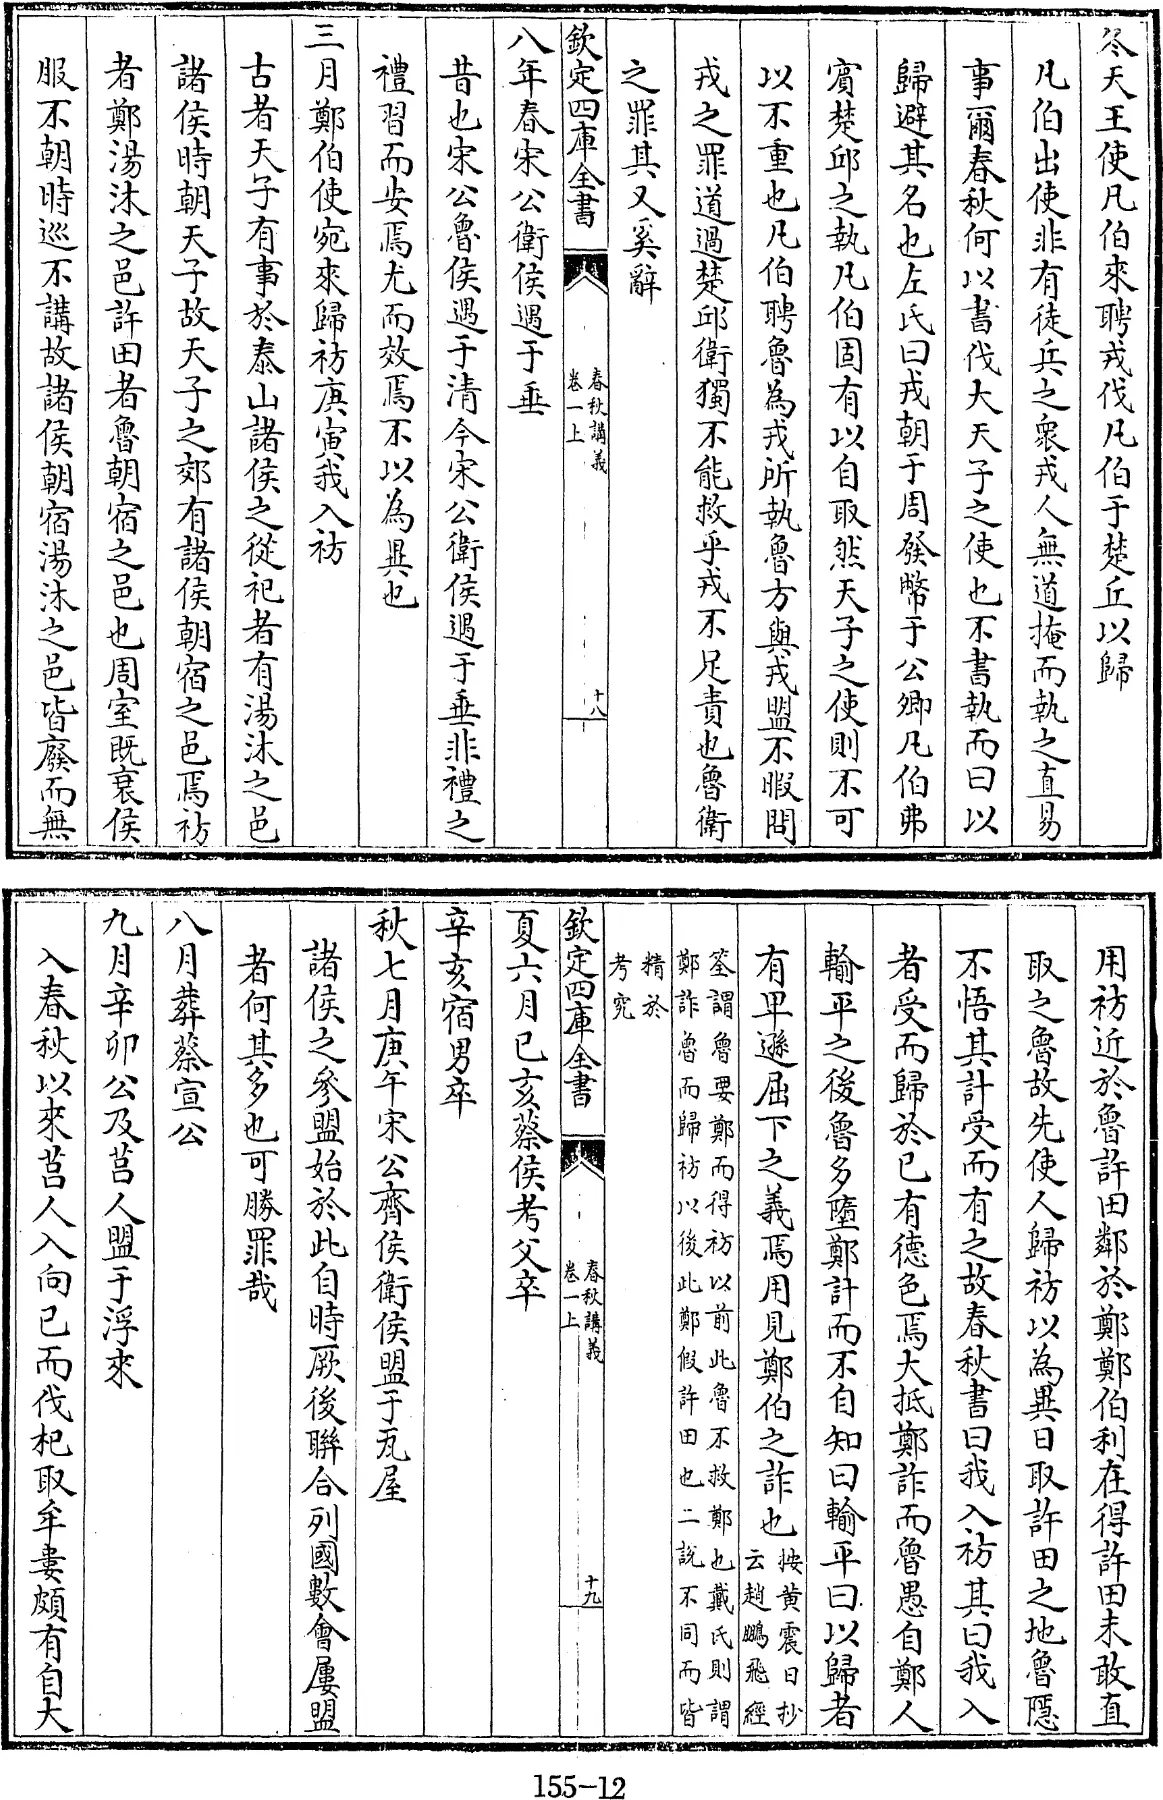 冬天王使凡伯來聘戎伐凡伯于楚丘以歸
凡伯出使非有徒兵之衆戎人無道掩而執之直易
事爾春秋何以書伐大天子之使也不書執而曰以
歸避其名也左氏曰戎朝于周發幣于公卿凡伯弗
賓楚邱之執凡伯固有以自取然天子之使則不可
以不重也凡伯聘魯為戎所執魯方與戎盟不暇問
戎之罪道過楚邱衛獨不能救乎戎不足責也魯衛
之罪其又奚辭
欽定四庫全書
春秋講義
卷一上
十八
八年春宋公衛侯遇于垂
昔也宋公魯侯遇于清今宋公衛侯遇于垂非禮之
禮習而安焉尤而效焉不以為異也
三月鄭伯使宛來歸祊庚寅我入祊
古者天子有事於泰山諸侯之從祀者有湯沐之邑
諸侯時朝天子故天子之郊有諸侯朝宿之邑焉祊
者鄭湯沐之邑許田者魯朝宿之邑也周室既衰侯
服不朝時巡不講故諸侯朝宿湯沐之邑皆廢而無
用祊近於魯許田鄰於鄭鄭伯利在得許田未敢直
取之魯故先使人歸祊以為異日取許田之地魯隱
不悟其計受而有之故春秋書曰我入祊其曰我入
者受而歸於已有德色焉大抵鄭詐而魯愚自鄭人
輸平之後魯多墮鄭計而不自知曰輸平曰以歸者
有卑遜屈下之義焉用見鄭伯之詐也按黃震日抄
云趙鵬飛經
筌謂魯要鄭而得祊以前此魯不救鄭也戴氏則謂
鄭詐魯而歸祊以後此鄭假許田也二說不同而皆
精於
考究
欽定四庫全書
春秋講義
卷一上
十九
夏六月已亥蔡侯考父卒
辛亥宿男卒
秋七月庚午宋公齊侯衛侯盟于瓦屋
諸侯之參盟始於此自時厥後聯合列國數會屢盟
者何其多也可勝罪哉
八月葬蔡宣公
九月辛卯公及莒人盟于浮來
入春秋以來莒人入向已而伐杞取牟婁頗有自大
155-12